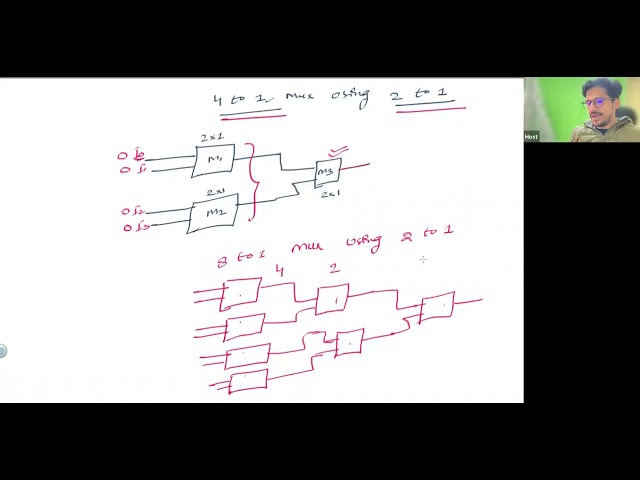 4 to 1 mux using 2 to 1
2x1
0 I0
0 I1
M1
M3
2x1
2x1
0 I2
0 I3
M2
8 to 1 mux using 2 to 1
4 2
Host